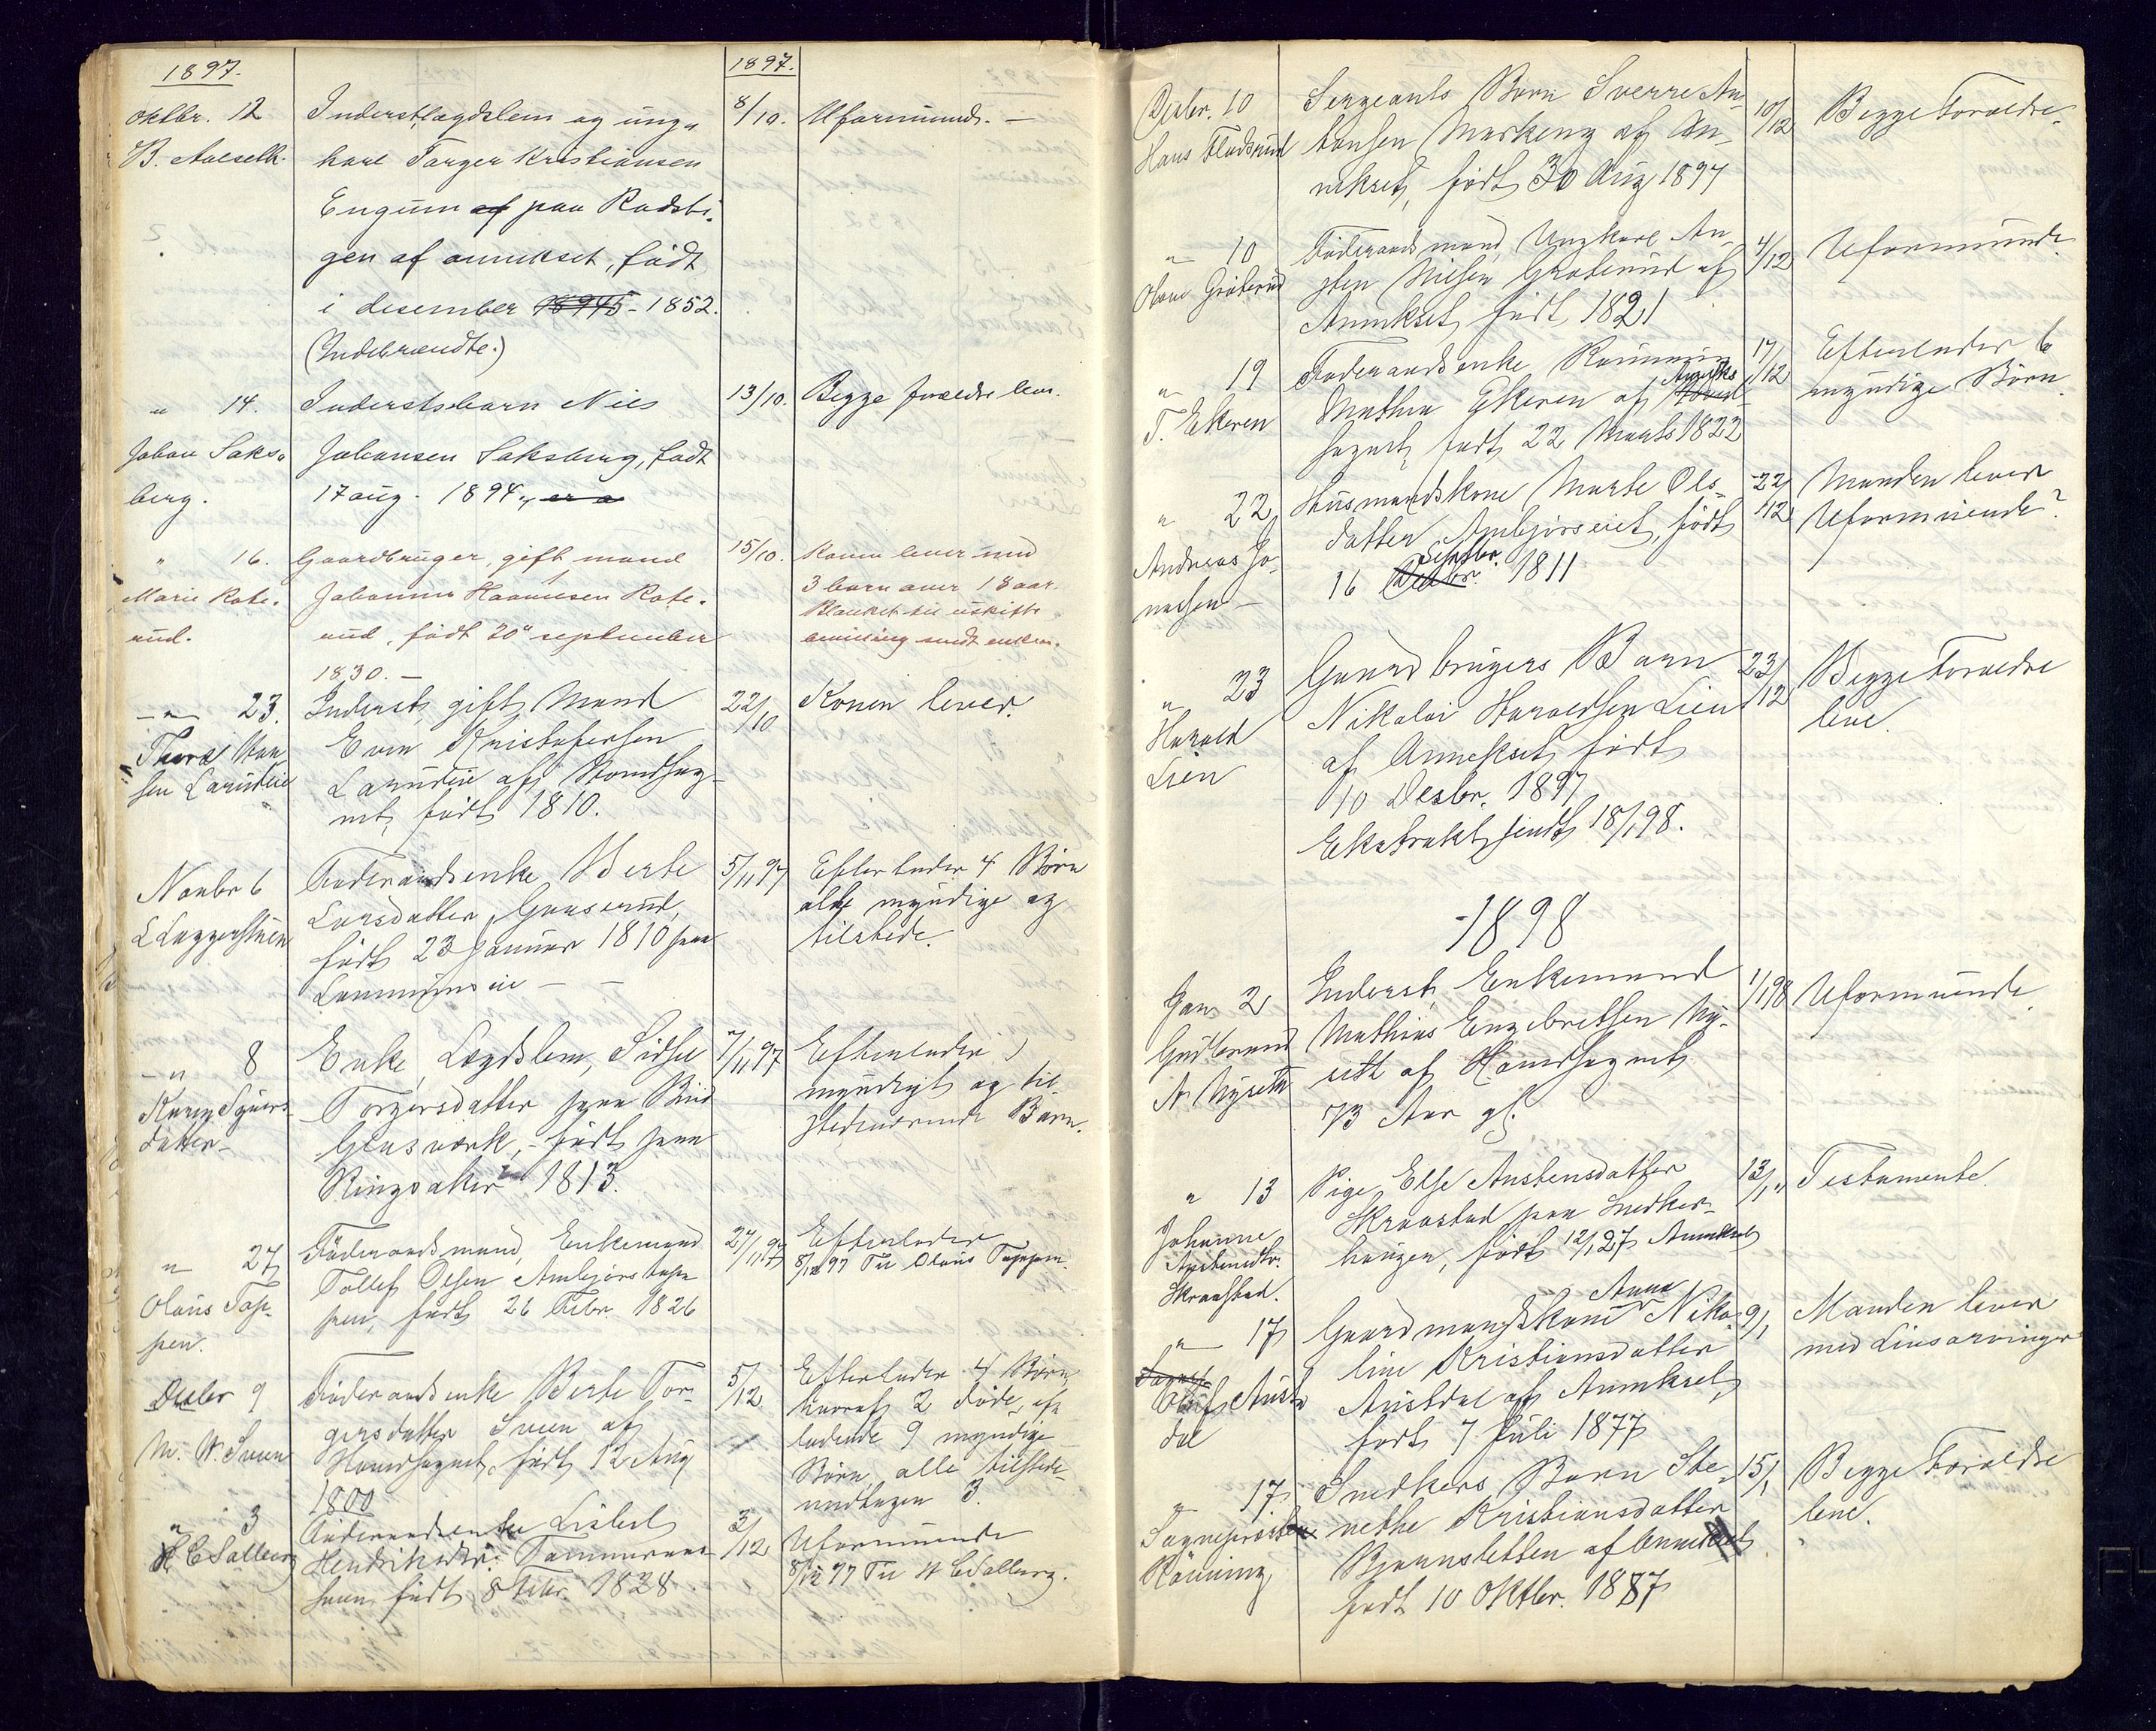 1897.
1897.
Oktbr. 12
B. Aaeseth.
Inderst, lægdslem og ung-
karl Torger Kristiansen
Engum af paa Rodsti-
gen af annekset, født
i desember 18945 - 1852.
(Indebrændte.)
8/10.
Uformuend. -
" 14.
Johan Saks-
berg.
Inderstsbarn Nils
Johansen Saksberg, født
17 aug. 1894.
13/10.
Begge forældre lever.
" 16.
Marie Rote-
rud.
Gaardbruger, gift mand
Johannes Hansen Rote-
rud, født 20 september
1830. -
15/10.
Konen lever med
3 barn over 18 aar.
Blanket til uskifte-
bevilling sendt enken.
-"- 23.
Thord Han-
sen Larudeie
Inderst, gift Mand
Even Kristofersen
Larudeie af Hovedsog-
net, født 1810.
22/10
Konen lever.
Novbr 6
L Laggerstuen
Føderaadsenke Berte
Larsdatter Gaaserud,
født 23 Januar 1810 paa
5/11 97
Efterlader 4 Børn
alle myndige og
tilstede.
-"- 8
Karen Syvers-
datter -
Enke, Lægdslem, Sidsel
Torgersdatter paa Biri
Glasværk, - født paa
Ringsaker 1813.
7/11 97
Efterlader 1
myndigt og til-
stedeværende Barn.
" 27
Olaus Tap-
pen.
Føderaadsmand, Enkemand
Tollef Olsen Ambjørstap-
pen, født 26 Febr. 1826
27/11 97
Efterlader
8/12 97 Til Olaus Tappen.
Desbr 9
M. H. Sveen
Føderaadsenke Berte Tor-
gersdatter Sveen af
Hovedsognet, født 12 Aug
1800
5/12
Efterlader 4 Børn,
hvoraf 2 døde, efter-
ladende 9 myndige
Børn, alle tilstede
undtagen 3.
" 3
H C Solberg
Føderaadsenke Lisbet
Hendriksdtr.
født 8 Febr. 1828
3/12
Uformuende
8/12 97 Til H C Solberg.
Desbr. 10
Hans Fladsrud
Sergeants Barn Sverre An-
tonsen Markeng af An-
nekset, født 30 Aug 1897
10/12
Begge Forældre.
" 10
Olave Graberud
Føderaadsmand, Ungkarl An-
sten Nilsen Graberud af
Annekset, født 1821
4/12
Uformuende
" 19
T. Ekeren
Føderaadsenke Rønnaug
Mathea Ekeren af Anneks
født 22 Marts 1822
17/12
Efterlader 6
myndige Børn.
" 22
Andreas Jo-
nassen -
Husmandskone Marte Ols-
datter Ambjørseiet, født
Septbr.
16 Oktbr. 1811
22/12
Manden lever
Uformuende?
" 23
Harald
Lien
Gaardbrugers Barn
Nikolai Haraldsen Lien
af Annekset, født
10 Desbr. 1897
Ekstrakt sendt 18/1 98.
23/12
Begge Forældre
leve.
1898
Jan 2
Gudbrand
M Nyseth
Inderst, Enkemand
Mathias Engebretsen Ny-
seth af Hovedsognet
73 Aar gl.
1/1 98
Uformuende
" 13
Johanne
Austensdtr.
Skraastad.
Pige Else Austensdatter
Skraastad paa Snedker-
haugen, født 12/1 27 Annekset
13/1 "
Testamente.
" 17
Oluf Aust-
dal
Anna
Gaardmandskone Niko-
line Kristiansdatter
Austdal af Annekset,
født 7 Juli 1877
9/1
Manden lever
med Livsarvinger
" 17
Sogneprest
Rønning
Snedkers Barn Ste-
nethe Kristiansdatter
Bjørnstetten af Annekset
født 10 Oktbr. 1887
15/1
Begge Forældre
leve.